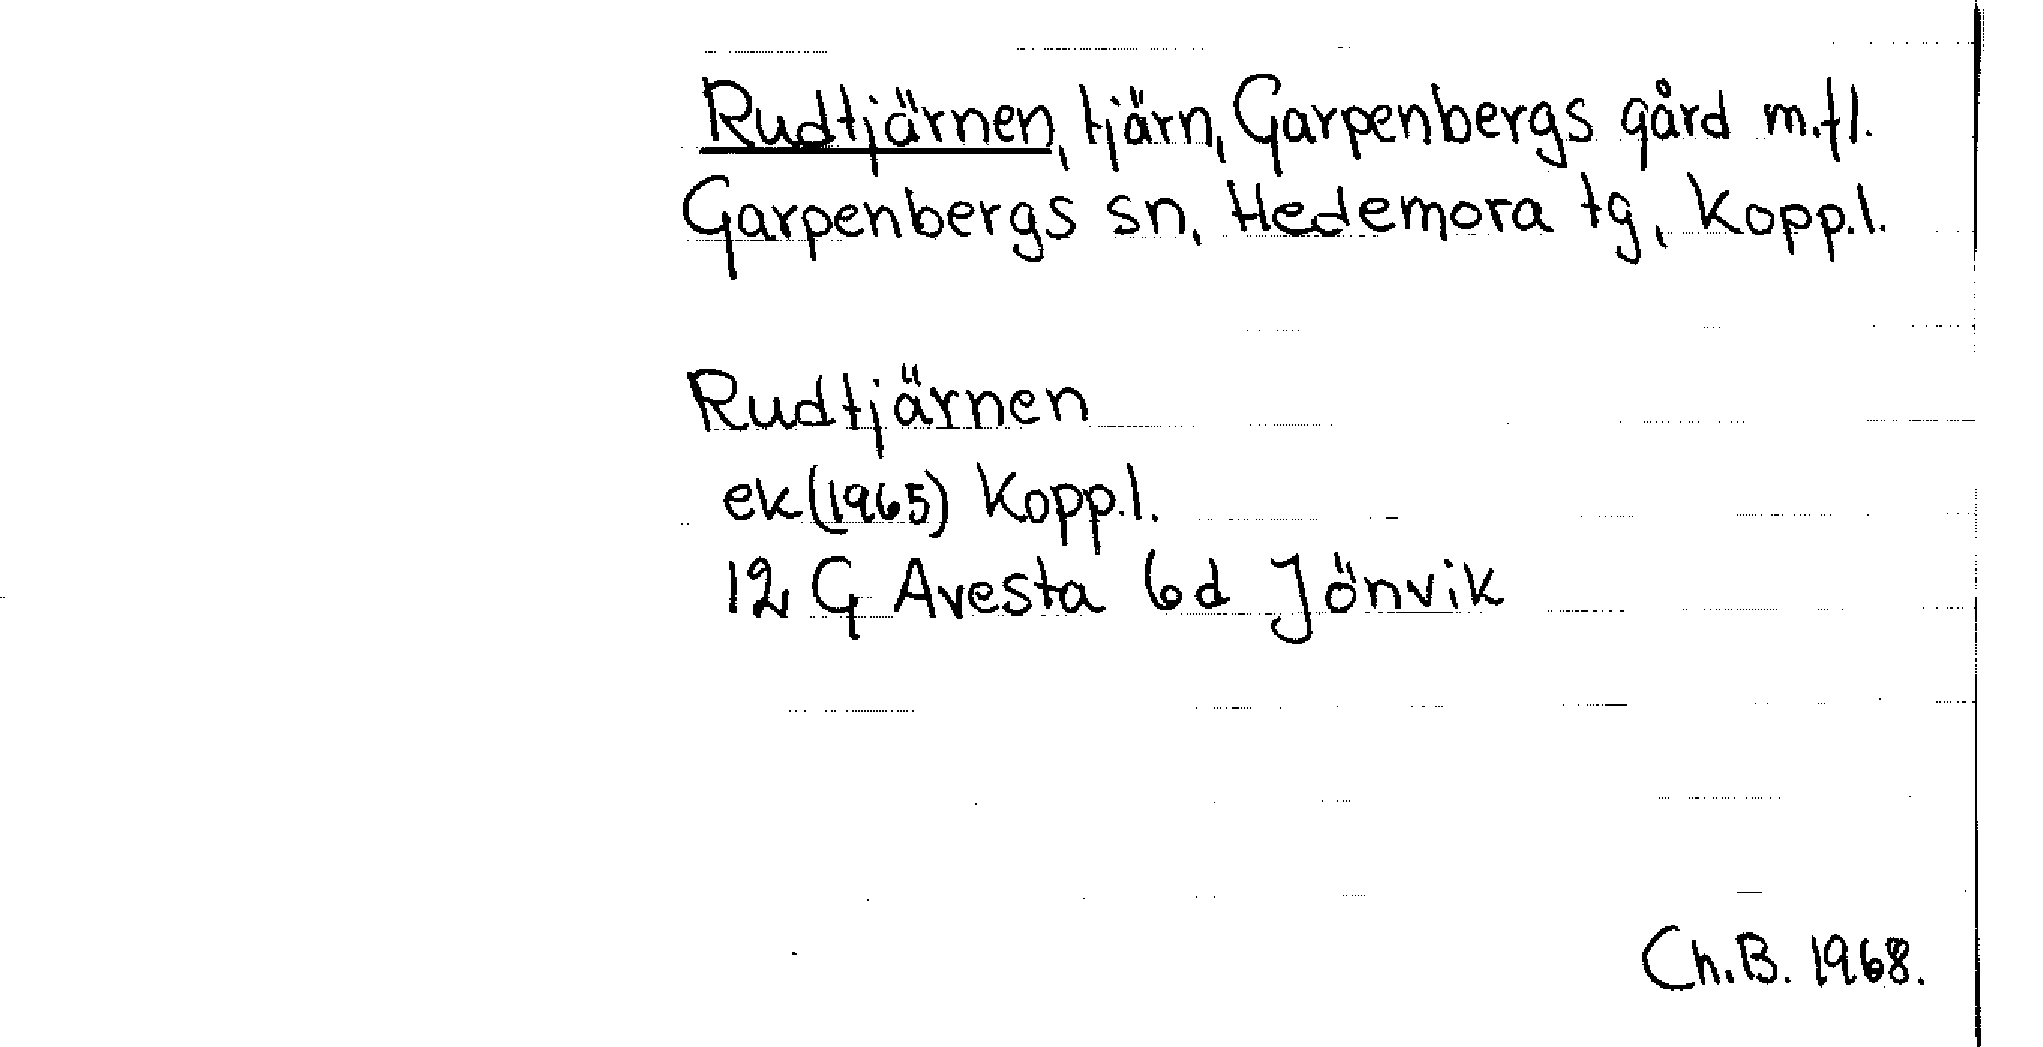 Rudtjärnen, tjärn, Garpenbergs gård m.fl.
Garpenbergs sn, Hedemora tg, Kopp.l.
Rudtjärnen
ek (1965) Kopp.l.
12 G Avesta 6d Jönvik
Ch.B. 1968.